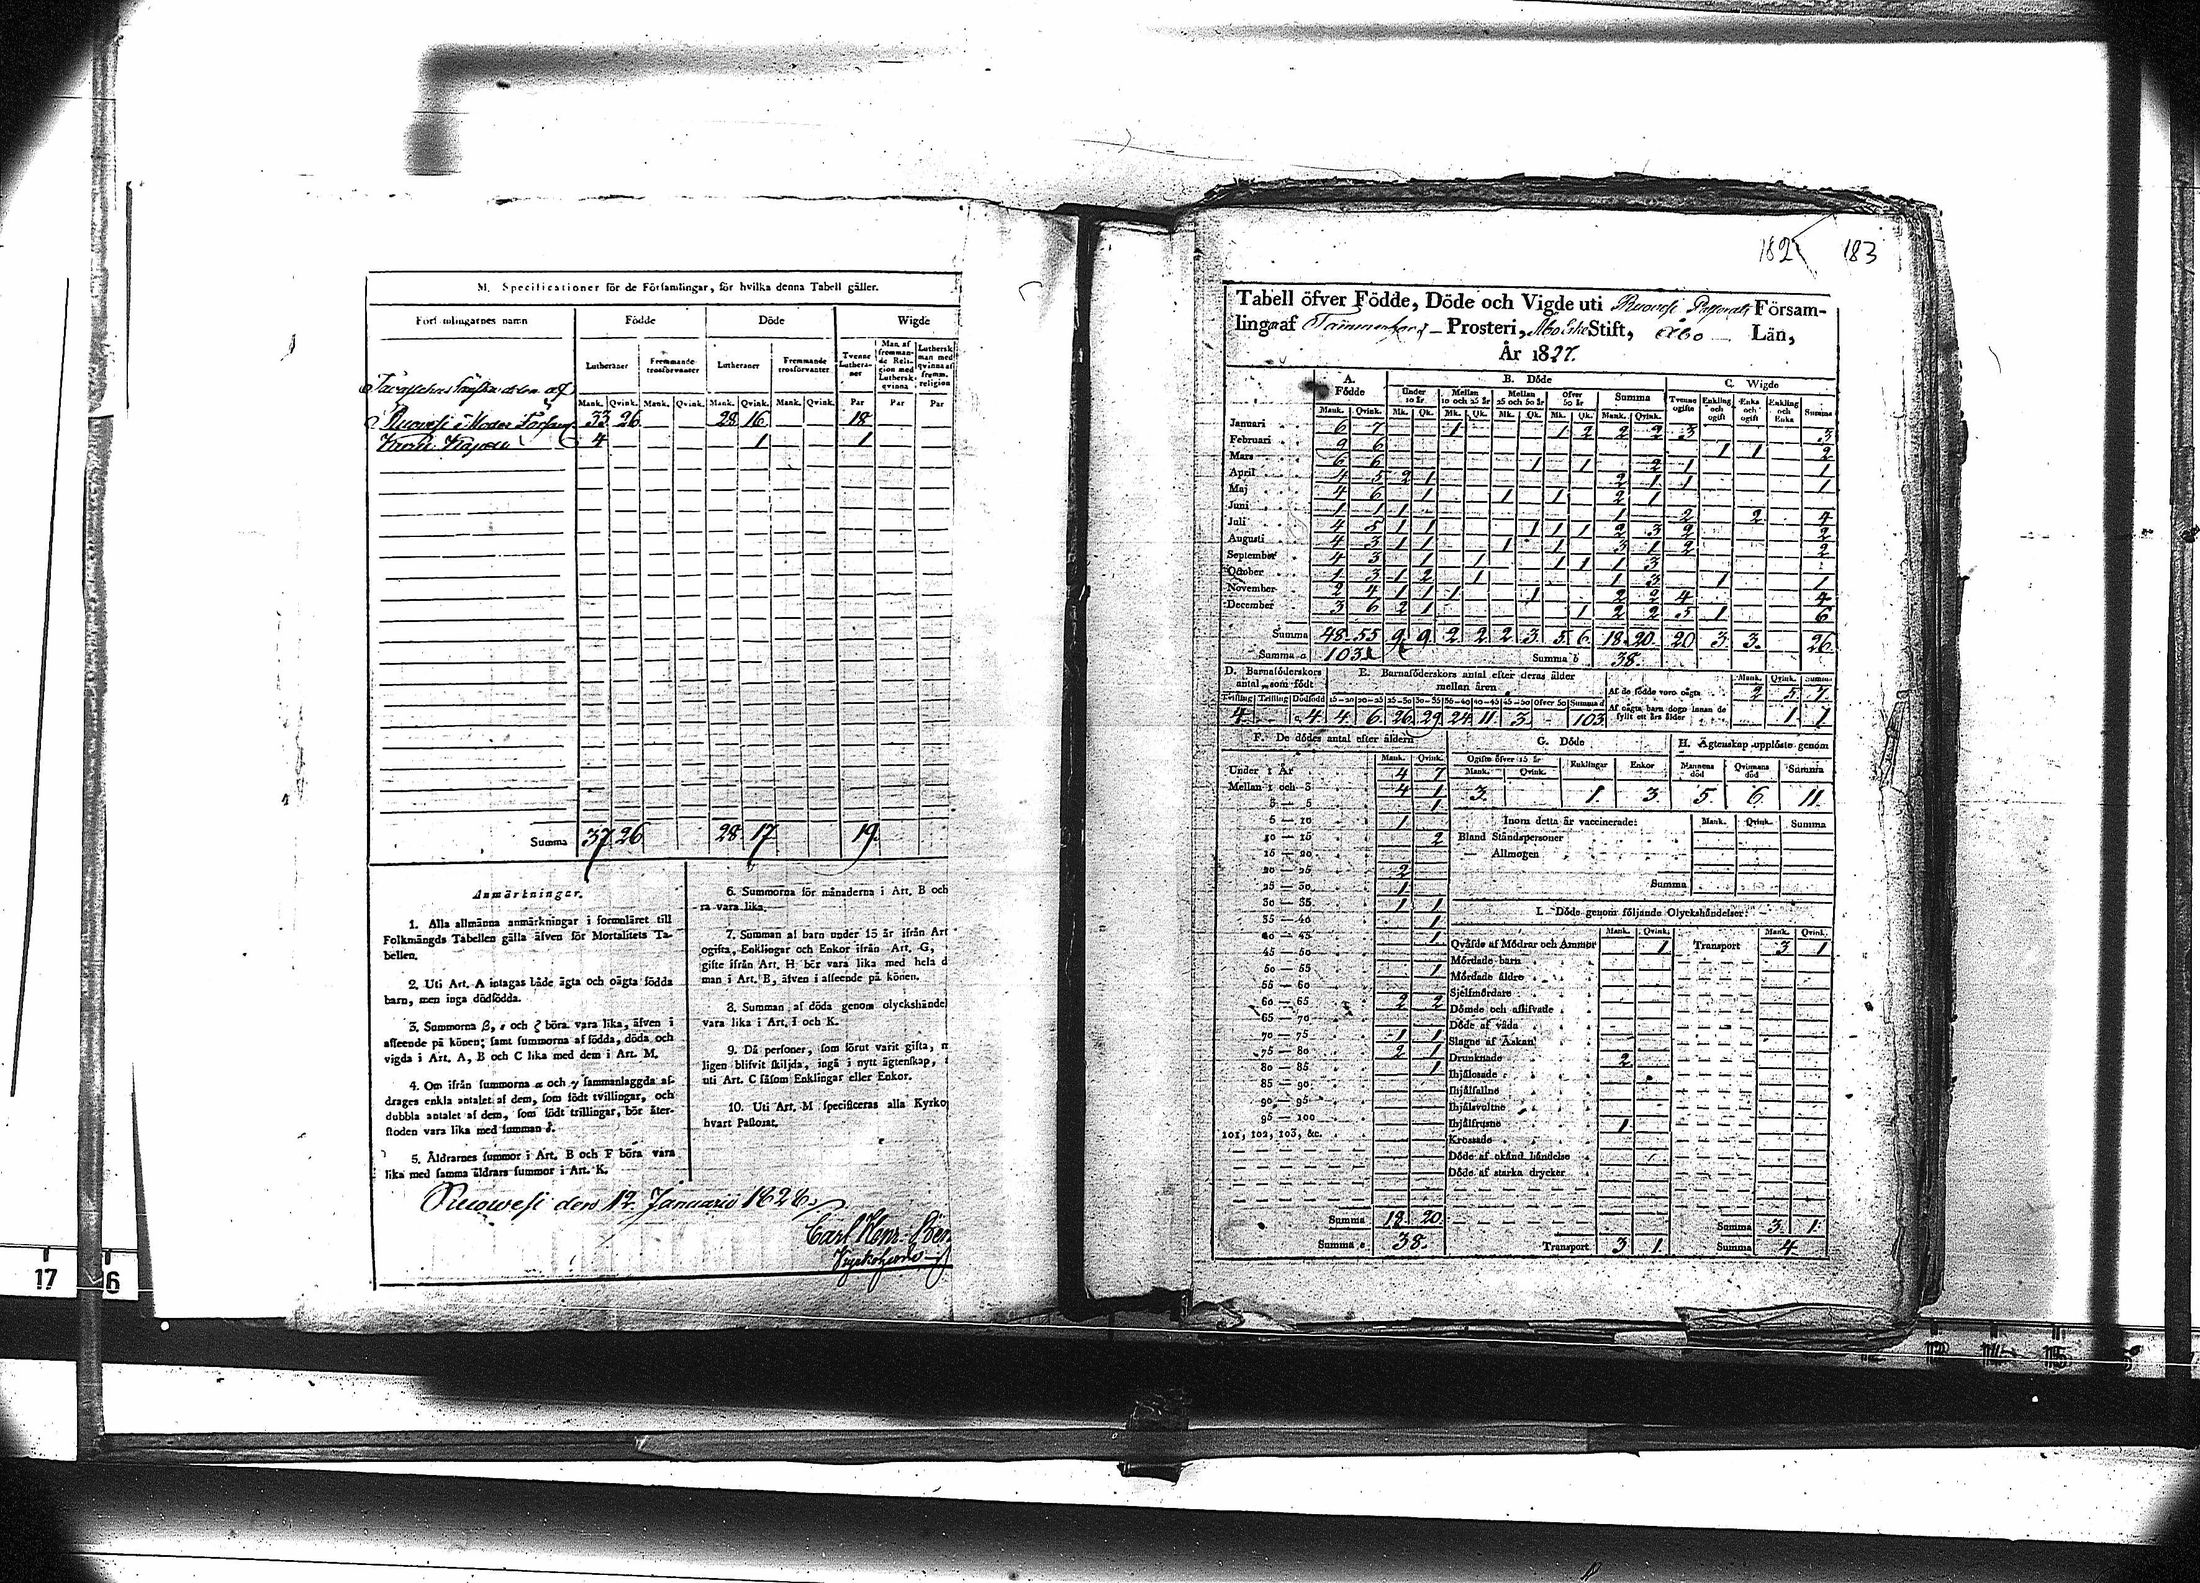 M. Specificationer för de Församlingar, för hvilka denna Tabell gäller.
Församlingarnes namn Födde Döde Wigde
Lutheraner Fremmande trosförvanter Lutheraner Fremmande trosförvanter Tvenne Lutheraner Man af fremmande Religion med Luthersk qvinna Luthersk man med qvinna af fremm. religion
Mank. Qvink. Mank. Qvink. Mank. Qvink. Mank. Qvink. Par Par Par
Ruowesi Moder 33 26 28 16 18
Kuru 4 1 1
Summa 37 26 28 17 19
Anmärkningar.
1. Alla allmänna anmärkningar i formuläret till
Folkmängds Tabellen gälla äfven för Mortalitets Ta-
bellen.
2. Uti Art. A intagas både ägta och oägta födda
barn, men inga dödfödda.
3. Summorna β, ε och ζ böra vara lika, äfven i
afseende på könen; samt summorna af födda, döda och
vigda i Art. A, B och C lika med dem i Art. M.
4. Om ifrån summorna α och γ sammanlaggda af-
drages enkla antalet af dem, som födt tvillingar, och
dubbla antalet af dem, som födt trillingar, bör åter-
stoden vara lika med summan δ.
5. Åldrarnes summor i Art. B och F böra vara
lika med samma åldrars summor i Art. K.
6. Summorna för månaderna i Art. B och
ra vara lika.
7. Summan af barn under 15 år ifrån Art
ogifta, Enklingar och Enkor ifrån Art. G,
gifte ifrån Art. H bör vara lika med hela d
man i Art. B, äfven i afseende på könen.
8. Summan af döda genom olyckshändel
vara lika i Art. I och K.
9. Då personer, som förut varit gifta,
ligen blifvit skiljda, ingå i nytt ägtenskap,
uti Art. C såsom Enklingar eller Enkor.
10. Uti Art. M specificeras alla Kyrko
hvart Pastorat.
Ruowesi den 12. Januarii 1828.
Carl Henr.
183
Tabell öfver Födde, Döde och Vigde uti Ruovesi Pastorats Försam-
ling af Tammerfors Prosteri, Åbo Stift, Åbo Län,
År 1827.
A. Födde B. Döde C. Wigde
Under 10 år Mellan 10 och 25 år Mellan 25 och 50 år Öfver 50 år Summa Tvenne ogifte Enkling och ogift Enka och ogift Enkling och Enka Summa
Mank. Qvink. Mk. Qk. Mk. Qk. Mk. Qk. Mk. Qk. Mank. Qvink.
Januari 6 7 1 1 2 2 2 3 3
Februari 9 6 1 1 2
Mars 6 6 1 1 2 1 1
April 4 5 2 1 2 1 1 1
Maj 4 6 1 1 1 2 1
Juni 1 1 1 1 2 2 4
Juli 4 5 1 1 1 1 1 2 3 2 2
Augusti 4 3 1 1 1 1 3 1 2 2
September 4 3 1 1 1 1 1 3
October 1 3 1 2 1 1 3 1 1
November 2 4 1 1 1 1 2 2 4 4
December 3 6 2 1 1 2 2 5 1 6
Summa 48 55 9 9 2 2 2 3 5 6 18 20 20 3 3 26
Summa a 103 Summa b 38
D. Barnaföderskors antal, som födt
E. Barnaföderskors antal efter deras ålder mellan åren
Tvilling Trilling Dödfödd 15-20 20-25 25-30 30-35 35-40 40-45 45-50 Öfver 50 Summa d
4 4 4 6 26 29 24 11 3 103
Mank. Qvink. Summa
Af de födde voro oägta 2 5 7
Af oägta barn dogo innan de fyllt ett års ålder 1 1
F. De dödes antal efter åldern
Mank. Qvink.
Under 1 År 4 7
Mellan 1 och 3 4 1
3 — 5 1
5 — 10 1
10 — 15 2
15 — 20
20 — 25 2
25 — 30 1
30 — 35 1 1
35 — 40 1
40 — 45 1
45 — 50
50 — 55 1
55 — 60
60 — 65 2 2
65 — 70
70 — 75 1 1
75 — 80 2 1
80 — 85 1
85 — 90
90 — 95
95 — 100
101, 102, 103, &c.
Summa 18 20
Summa e 38.
G. Döde
Ogifte öfver 15 år Enklingar Enkor
Mank. Qvink.
3 1 3
H. Ägtenskap upplöste genom
Mannens död Qvinnans död Summa
5. 6. 11.
Inom detta år vaccinerade: Mank. Qvink. Summa
Bland Ståndspersoner
— Allmogen
Summa
I. Döde genom följande Olyckshändelser:
Mank. Qvink. Mank. Qvink.
Qväfde af Mödrar och Ammor 1 Transport 3 1
Mördade barn
Mördade äldre
Sjelfmördare
Dömde och aflifvade
Döde af våda
Slagne af Åskan
Drunknade 2
Ihjälosade
Ihjälfallne
Ihjälsvultne
Ihjälfrusne 1
Krossade
Döde af okänd händelse
Döde af starka drycker
Summa 3 1
Transport 3 1 Summa 4
17